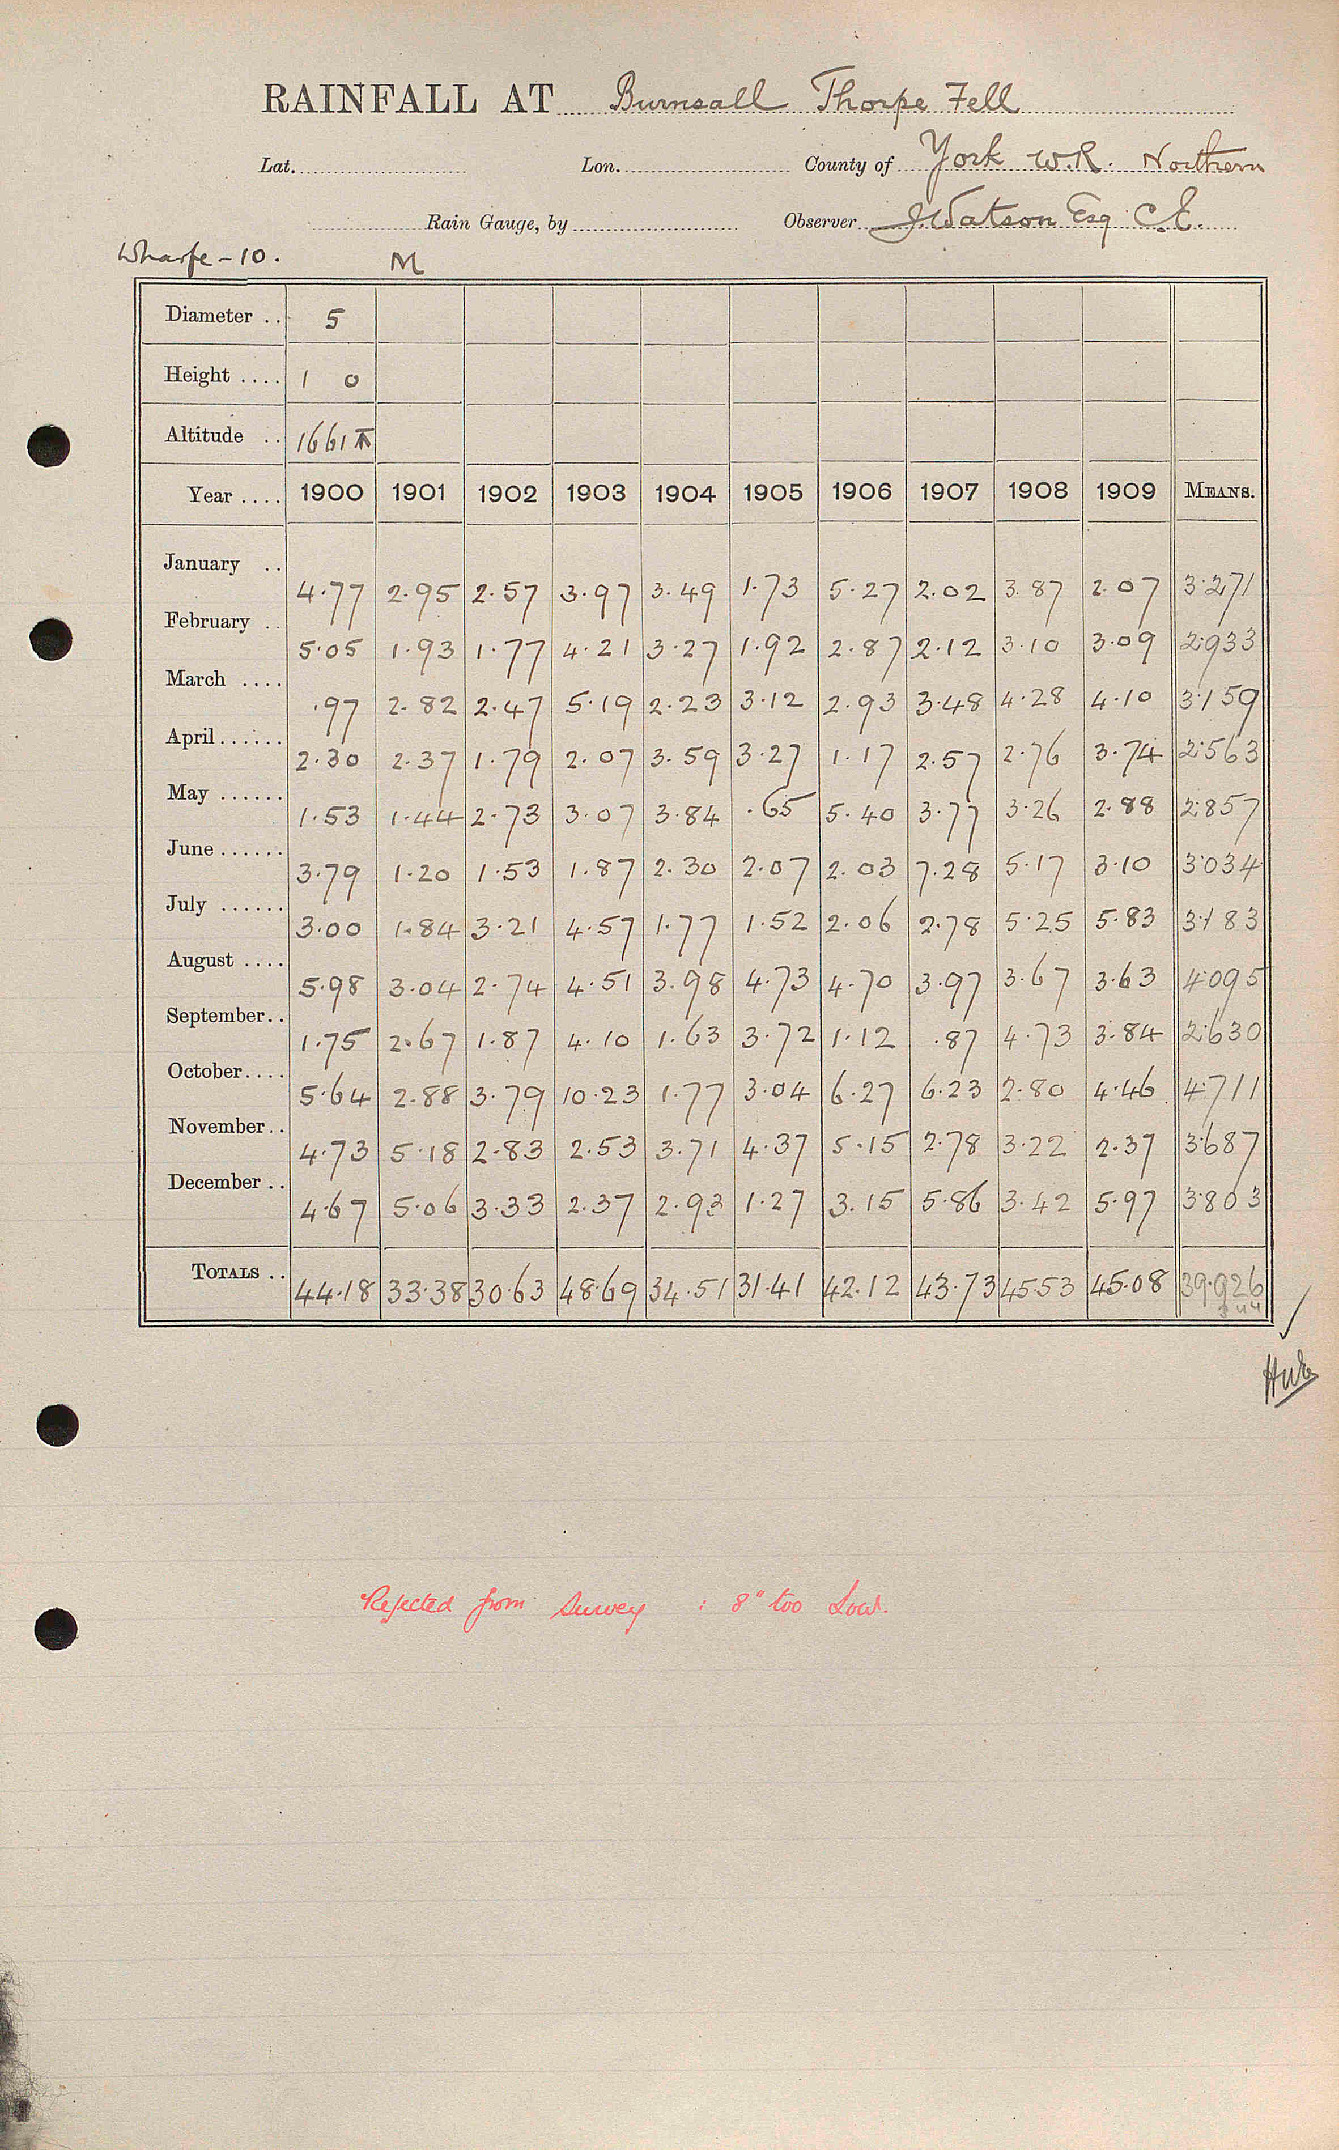 RAINFALL AT Burnsall Thorpe Fell
Lat. Lon. County of York W.R. Northern
Rain Gauge, by Observer J. Watson Esq C.E.
Wharfe - 10. M
Diameter .. 5
Height .... 1 0
Altitude .. 1661
Year .... 1900 1901 1902 1903 1904 1905 1906 1907 1908 1909 MEANS.
January .. 4.77 2.95 2.57 3.97 3.49 1.73 5.27 2.02 3.87 2.07 3.271
February .. 5.05 1.93 1.77 4.21 3.27 1.92 2.87 2.12 3.10 3.09 2.933
March .... .97 2.82 2.47 5.19 2.23 3.12 2.93 3.48 4.28 4.10 3.159
April...... 2.30 2.37 1.79 2.07 3.59 3.27 1.17 2.57 2.76 3.74 2.563
May ...... 1.53 1.44 2.73 3.07 3.84 .65 5.40 3.77 3.26 2.88 2.857
June ...... 3.79 1.20 1.53 1.87 2.30 2.07 2.03 7.28 5.17 3.10 3.034
July ...... 3.00 1.84 3.21 4.57 1.77 1.52 2.06 2.78 5.25 5.83 3.183
August .... 5.98 3.04 2.74 4.51 3.98 4.73 4.70 3.97 3.67 3.63 4.095
September.. 1.75 2.67 1.87 4.10 1.63 3.72 1.12 .87 4.73 3.84 2.630
October.... 5.64 2.88 3.79 10.23 1.77 3.04 6.27 6.23 2.80 4.46 4.711
November.. 4.73 5.18 2.83 2.53 3.71 4.37 5.15 2.78 3.22 2.37 3.687
December .. 4.67 5.06 3.33 2.37 2.93 1.27 3.15 5.86 3.42 5.97 3.803
TOTALS .. 44.18 33.38 30.63 48.69 34.51 31.41 42.12 43.73 45.53 45.08 39.926
Rejected from Survey : 8" too Low.